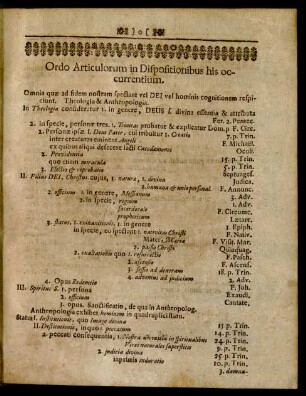 )o(
Ordo Articulorum in Dispositionibus his oc-
currentium.
Omnia quæ ad fidem nostram spectant vel DEI vel hominis cognitionem respi-
ciunt. Theologia & Anthropologia.
In Theologia consideratur 1. in genere, DEUS s. divina essentia & attributa
Fer. 2. Pentec.
2. In specie, personæ tres. 1. Trinitas probatur & explicatur Dom. p. F. Circ.
2. Personæ ipsæ I. Deus Pater, cui tribuitur 1. Creatio 7. p. Trin.
inter creaturas eminent Angeli F. Michaël.
ex quibus aliqui defecere lacti Oculi.
2. Providentia 15. p. Trin.
quo etiam miracula 5. p. Trin.
3. Electio & reprobatio Septuages.
II. Filius DEI, Christus, cujus, 1. natura, 1. divina Judica.
2. humana & unio personal. F. Annunc.
2. officium 1. in genere, Messiatus 3. Adv.
2. in specie, regium 1. Adv.
sacerdotale F. Circume.
propheticum Lætare.
3. status, 1. exinanitionis, 1. in genere 1. Epiph.
in specie, eo spectant 1. nativitas Christi F. Nativ.
Mater, Maria F. Visit. Mar.
2. passio Christi Quinquag.
2. exaltationis quo 1. resurrectio F. Pasch.
2. ascensio F. Ascens.
3. sessio ad dextram 18. p. Trin.
4. adventus ad judicium 2. Adv.
4. Opus Redemtio F. Joh.
III. Spiritus S. 1. persona Exaudi,
2. officium Cantate,
3. opus. Sanctificatio, de qua in Anthropolog.
Anthropologia exhibet hominem in quadruplici statu.
Status I. Institutionis, quo imago divina 13. p. Trin.
II. Destitutionis, in quo 1. peccatum 14. p. Trin.
2. peccati consequentia, 1. Nostra in spiritualibus 24. p. Trin.
Vires naturales superstites 9. p. Trin.
2. judicia divina 25. p. Trin.
inprimis induratio 10. p. Trin.
3. damna-